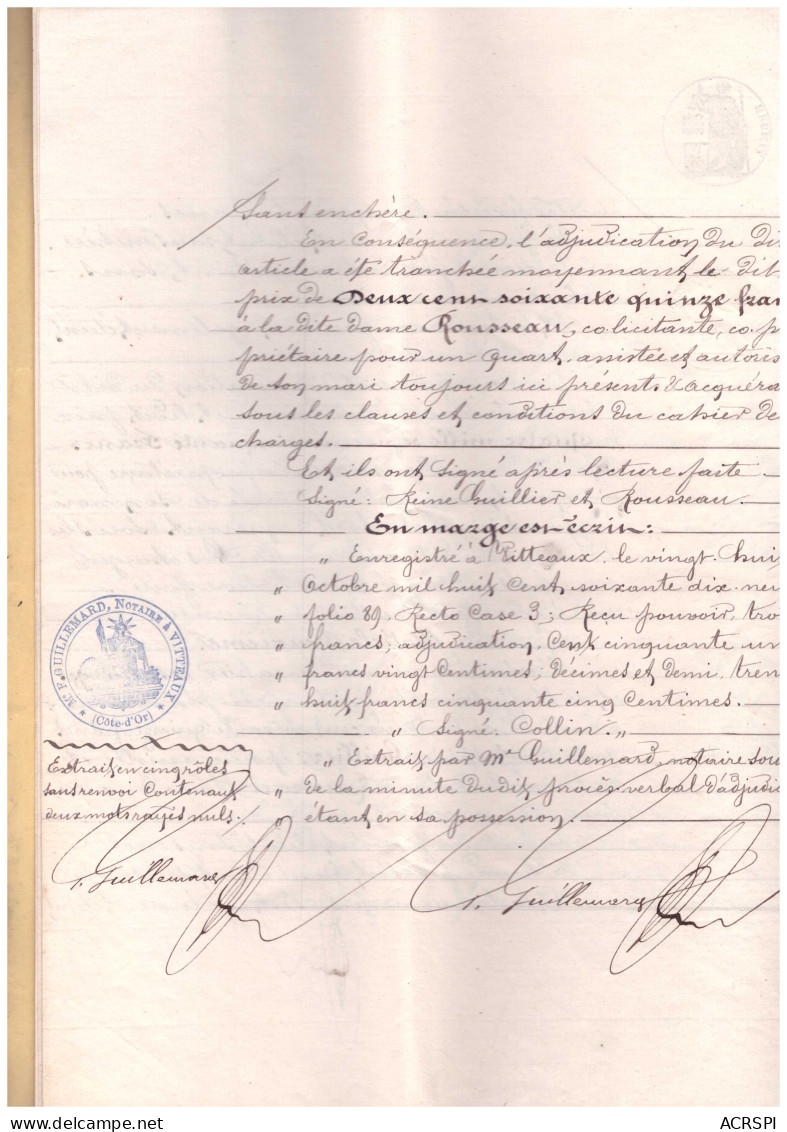 sans enchère.
En conséquence, l'adjudication du di
article a été tranchée moyennant le dit
prix de Deux cent soixante quinze fran
à la dite dame Rousseau, co-licitante, co-p
priétaire pour un quart, assistée et autoris
de son mari toujours ici présent. d'acquéra
sous les clauses et conditions du cahier de
charges.
Et ils ont signé après lecture faite
Signé: Reine Guillier et Rousseau.
En marge est écrit:
" Enregistré à Vitteaux, le vingt-hui
" Octobre mil huit cent soixante dix-neu
" folio 89, Recto Case 3; Reçu pouvoir, tro
" francs; adjudication, Cent cinquante un
" francs vingt Centimes; décimes et demi, tren
" huit francs cinquante cinq Centimes.
" Signé: Collin. "
" Extrait par Me Guillemard, notaire sou
" de la minute du dit procès-verbal d'adjudic
" étant en sa possession.
Mc F. GUILLEMARD, NOTAIRE à VITTEAUX
(Côte-d'Or)
Extrait en cinq rôles
sans renvoi Contenant
deux mots rayés nuls.
Guillemard
Guillemard
ACRSPI